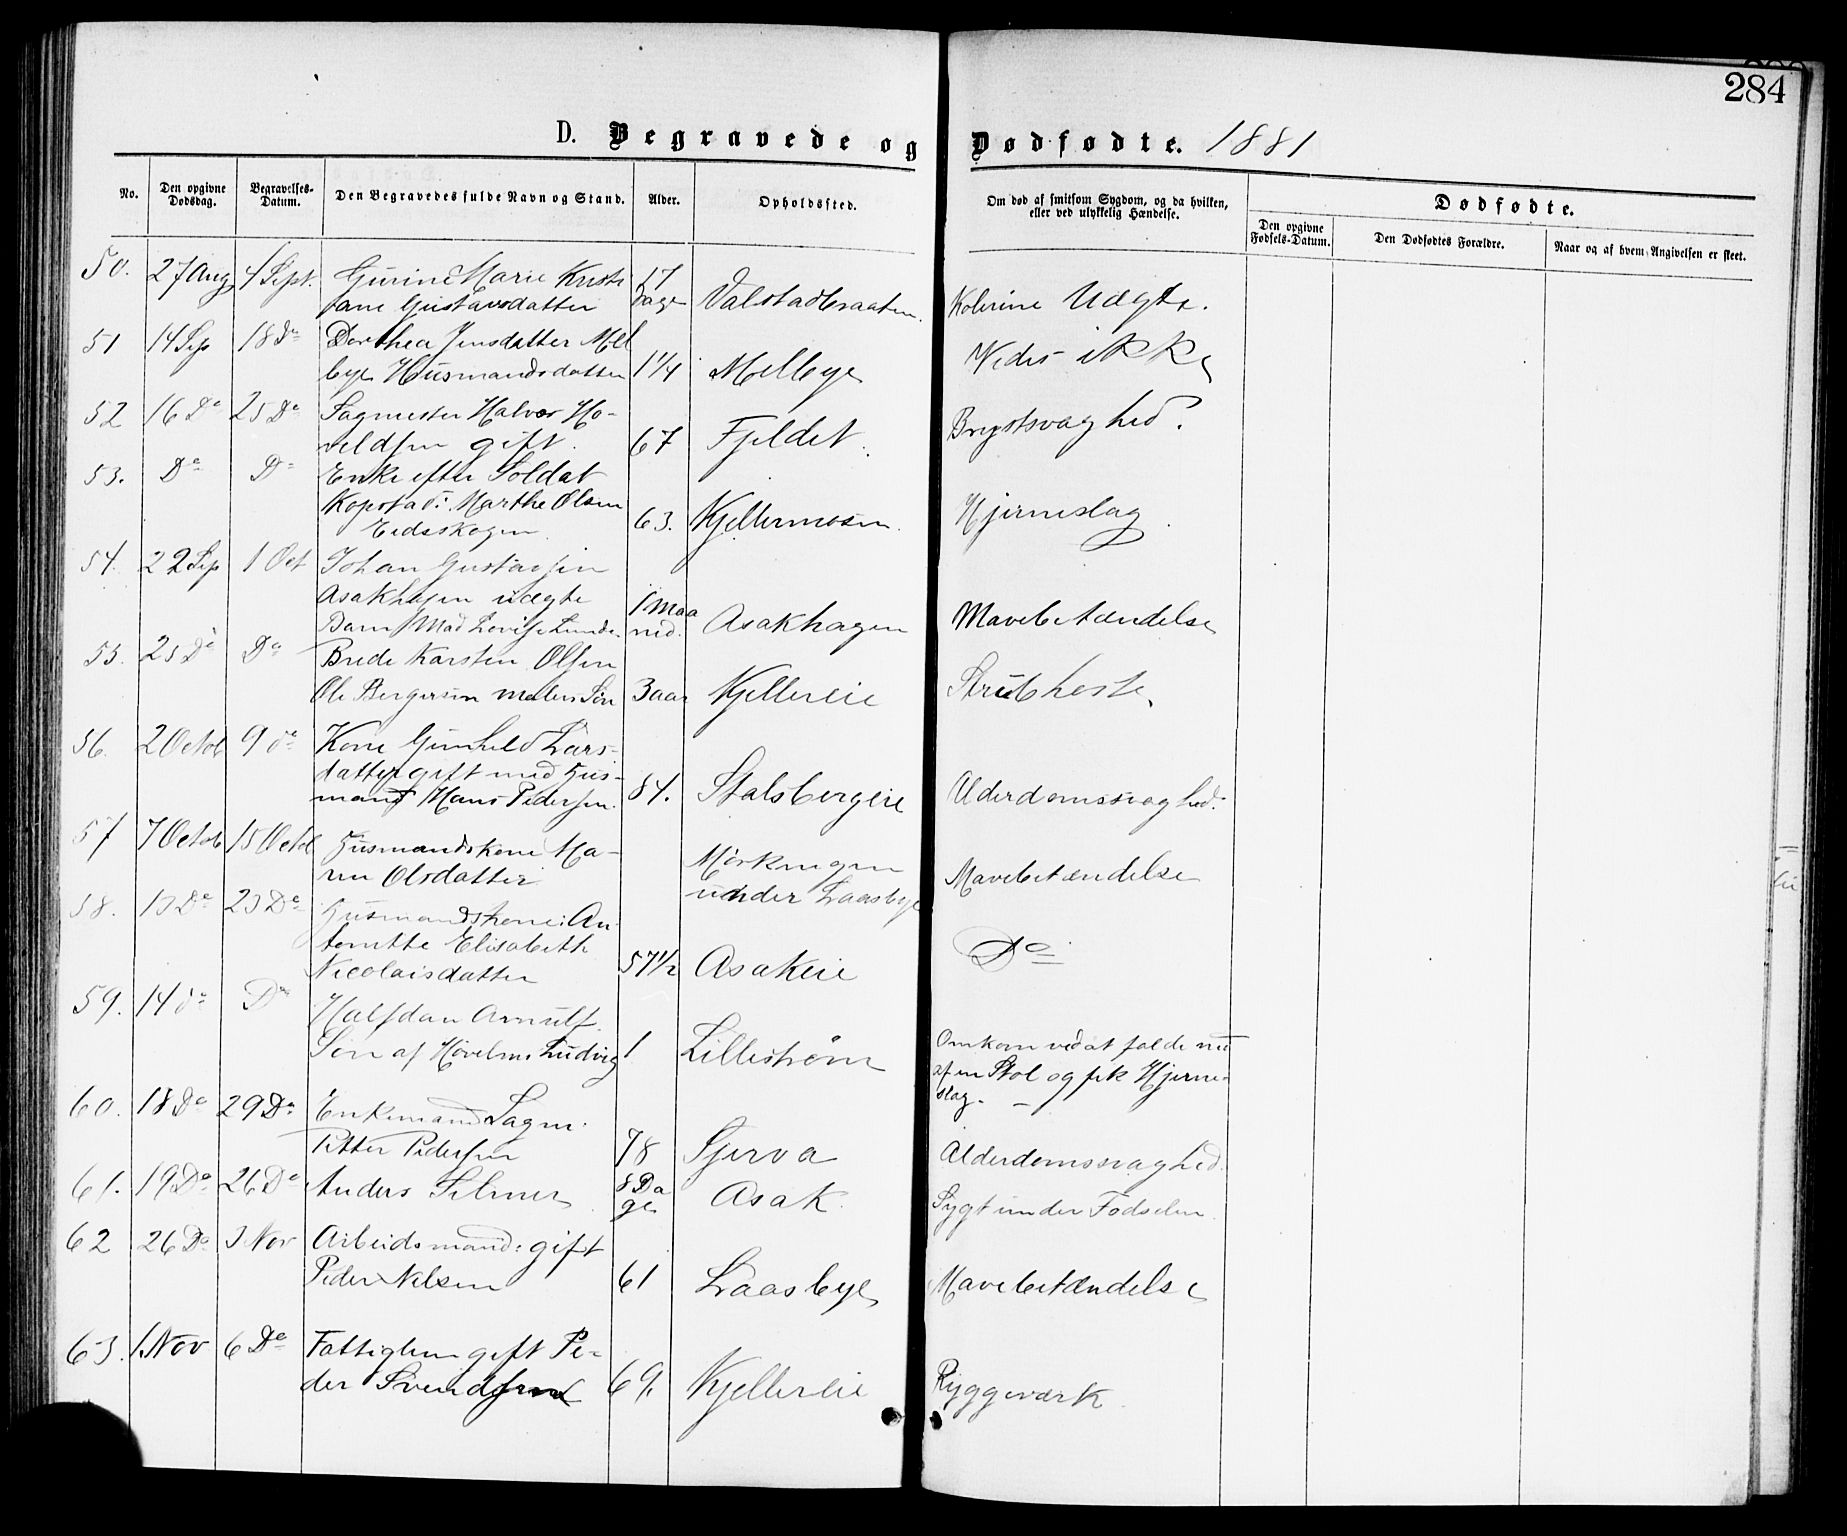 284
D. Begravede og Dødfødte. 1881
No.
Den opgivne Dødsdag.
Begravelses-Datum.
Den Begravedes fulde Navn og Stand.
Alder.
Opholdssted.
Om død af smitsom Sygdom, og da hvilken, eller ved ulykkelig Hændelse.
Dødfødte.
Den opgivne Fødsels-Datum.
Den Dødfødtes Forældre.
Naar og af hvem Angivelsen er skeet.
50. 27 Aug 4 Sept. Gurine Marie Kristi 17
fane Gustavsdatter Dage Valstadbraaten. Kolerine Udgte.
51 14 Sep 18 Do Dorthea Jensdatter Mel
bye Husmandsdatter 1 1/4 Melbye Vides ikke
52 16 Do 25 Do Sagmester Halvor Ho-
veldsen gift. 67 Fjeldet. Brystsvaghed.
53. Do Do Enke efter Soldat
Kopstad: Marthe Olsen 63. Kjellermosen. Hjerneslag
Eidsskogen.
54. 22 Sep 1 Oct Johan Gustavsen
Asakhagen uægte 1 Maa
Barn Mad Lovise Lunde. ned. Asakhagen Mavebetændelse
55. 25 Do Do Brede Karsten Olsen
Ole Bergersen Malers Søn 3 aar Kjellereie Strubehoste.
56. 2 Octob 9 do Kone Gunhild Lars-
datter gift med Hus-
mand Hans Pedersen. 84. Stalsbergeie Alderdomssvaghed.
57 7 Octob 15 Octob Husmandskone Ma-
ren Olsdatter Mørkvegen
under Laasbye Mavebetændelse
58. 13 Do 23 Do Husmandskone: An
tonette Elisabeth
Nicolaisdatter 57 1/2 Asakeie Do
59. 14 do Do Halfdan Arnulf.
Søn af Høvelm. Ludvig 1 Lillestrøm Omkom ved at falde ned
af en Stol og fik Hjerne-
slag. —
60. 18 Do 29 Do Enkemand Sagm.
Petter Pedersen 78 Sjerva Alderdomssvaghed.
61. 19 Do 26 Do Anders Selmer 8 Da
ge Asak. Sygt under Fødselen.
62 26 Do 3 Nov Arbeidsmand: gift
Peder Nelsen 61 Laasbye Mavebetændelse
63. 1. Nov 6 Do Fattiglem gift Pe-
der Svendsen 69. Kjellereie Ryggeværk.